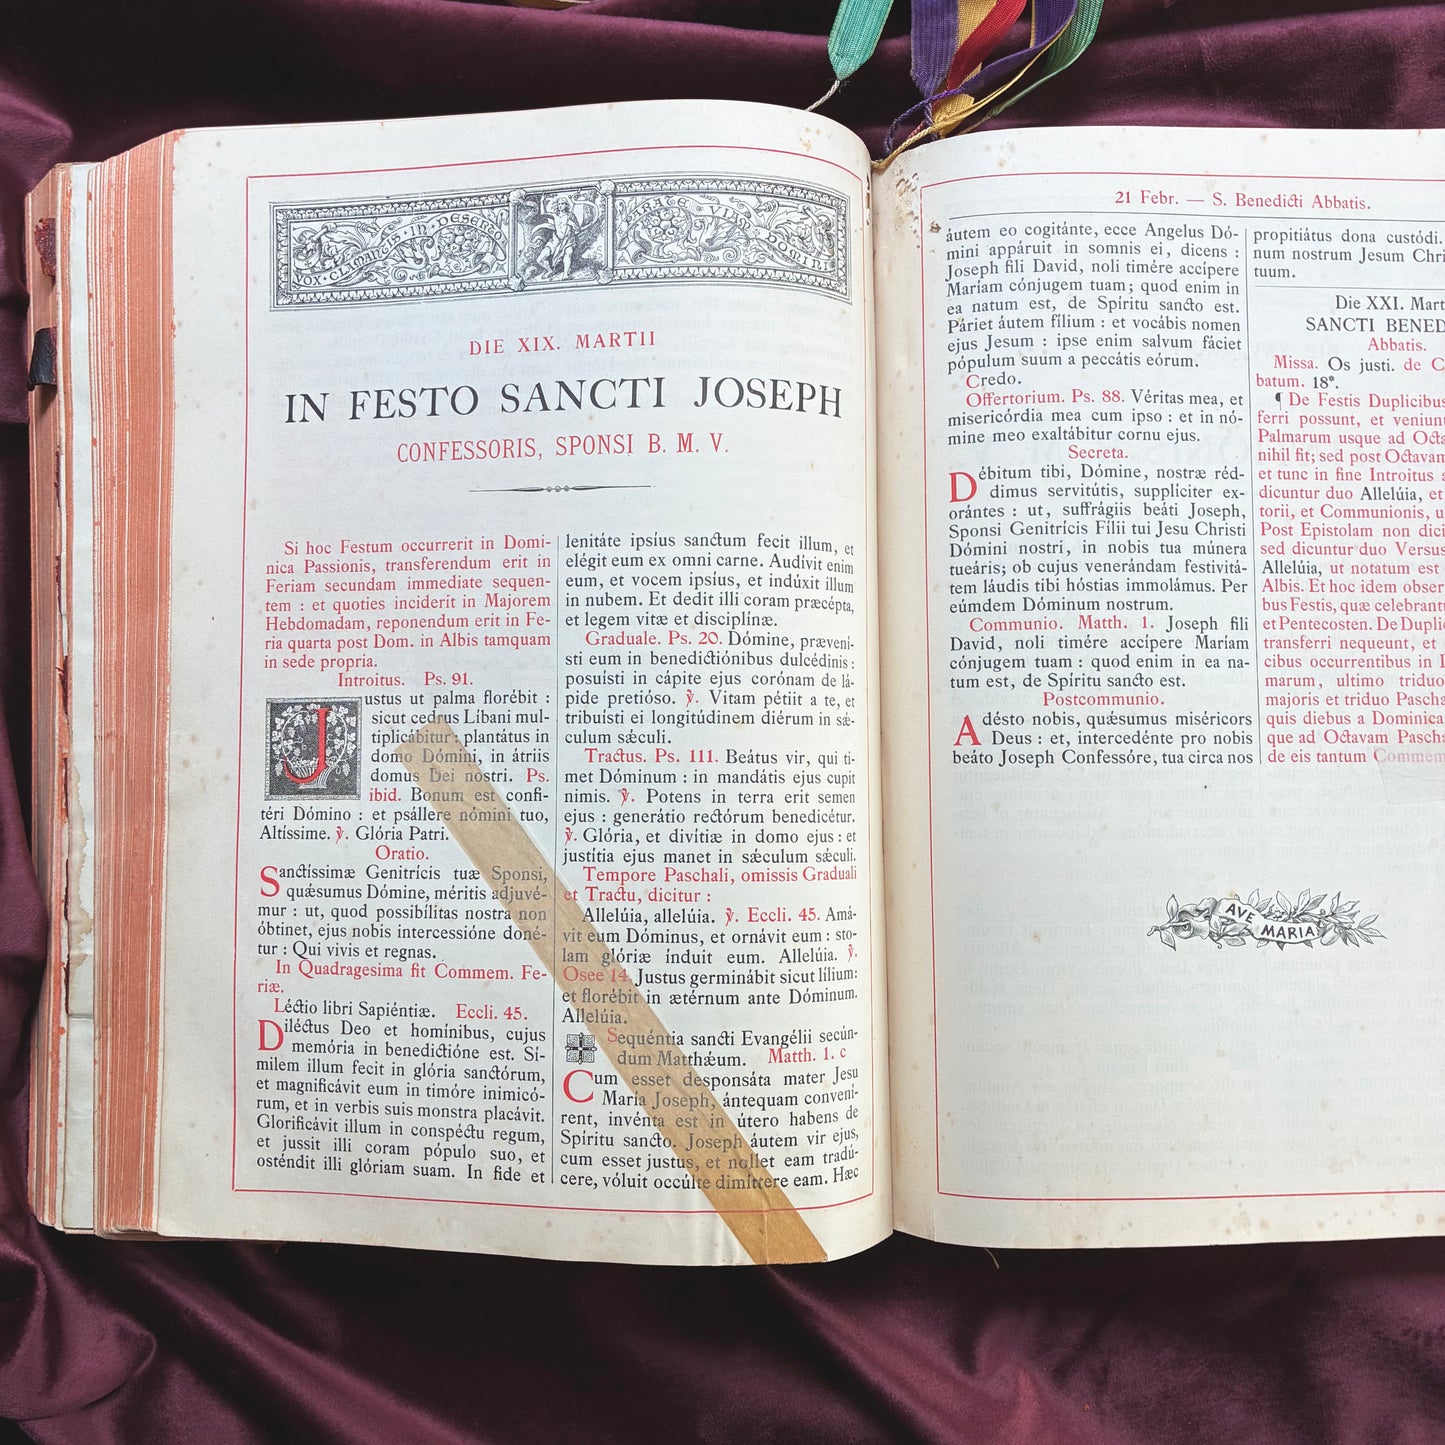 VOX · CLAMANTIS · IN · DESERTO
PARATE · VIAM · DOMINI
DIE XIX. MARTII
IN FESTO SANCTI JOSEPH
CONFESSORIS, SPONSI B. M. V.
Si hoc Festum occurrerit in Domi-
nica Passionis, transferendum erit in
Feriam secundam immediate sequen-
tem : et quoties inciderit in Majorem
Hebdomadam, reponendum erit in Fe-
ria quarta post Dom. in Albis tamquam
in sede propria.
Introitus. Ps. 91.
Justus ut palma florébit :
sicut cedrus Líbani mul-
tiplicábitur : plantátus in
domo Dómini, in átriis
domus Dei nostri. Ps.
ibid. Bonum est confi-
téri Dómino : et psállere nómini tuo,
Altíssime. ℣. Glória Patri.
Oratio.
Sanctíssimæ Genitrícis tuæ Sponsi,
quǽsumus Dómine, méritis adjuvé-
mur : ut, quod possibílitas nostra non
óbtinet, ejus nobis intercessióne doné-
tur : Qui vivis et regnas.
In Quadragesima fit Commem. Fe-
riæ.
Léctio libri Sapiéntiæ. Eccli. 45.
Diléctus Deo et homínibus, cujus
memória in benedictióne est. Sí-
milem illum fecit in glória sanctórum,
et magnificávit eum in timóre inimicó-
rum, et in verbis suis monstra placávit.
Glorificávit illum in conspéctu regum,
et jussit illi coram pópulo suo, et
osténdit illi glóriam suam. In fide et
lenitáte ipsíus sanctum fecit illum, et
elégit eum ex omni carne. Audívit enim
eum, et vocem ipsíus, et indúxit illum
in nubem. Et dedit illi coram præcépta,
et legem vitæ et disciplínæ.
Graduale. Ps. 20. Dómine, prævení-
sti eum in benedictiónibus dulcédinis :
posuísti in cápite ejus corónam de lá-
pide pretióso. ℣. Vitam pétiit a te, et
tribuísti ei longitúdinem diérum in sǽ-
culum sǽculi.
Tractus. Ps. 111. Beátus vir, qui ti-
met Dóminum : in mandátis ejus cupit
nimis. ℣. Potens in terra erit semen
ejus : generátio rectórum benedicétur.
℣. Glória, et divítiæ in domo ejus : et
justítia ejus manet in sǽculum sǽculi.
Tempore Paschali, omissis Graduali
et Tractu, dicitur :
Allelúia, allelúia. ℣. Eccli. 45. Amá-
vit eum Dóminus, et ornávit eum : sto-
lam glóriæ índuit eum. Allelúia. ℣.
Osee 14. Justus germinábit sicut lílium :
et florébit in ætérnum ante Dóminum.
Allelúia.
Sequéntia sancti Evangélii secún-
dum Matthǽum. Matth. 1. c
Cum esset desponsáta mater Jesu
María Joseph, ántequam convení-
rent, invénta est in útero habens de
Spíritu sancto. Joseph áutem vir ejus,
cum esset justus, et nollet eam tradú-
cere, vóluit occúlte dimíttere eam. Hæc
21 Febr. — S. Benedicti Abbatis.
áutem eo cogitánte, ecce Angelus Dó-
mini appáruit in somnis ei, dicens :
Joseph fili David, noli timére accípere
Maríam cónjugem tuam; quod enim in
ea natum est, de Spíritu sancto est.
Páriet áutem fílium : et vocábis nomen
ejus Jesum : ipse enim salvum fáciet
pópulum suum a peccátis eórum.
Credo.
Offertorium. Ps. 88. Véritas mea, et
misericórdia mea cum ipso : et in nó-
mine meo exaltábitur cornu ejus.
Secreta.
Débitum tibi, Dómine, nostræ réd-
dimus servitútis, supplíciter ex-
orántes : ut, suffrágiis beáti Joseph,
Sponsi Genitrícis Fílii tui Jesu Christi
Dómini nostri, in nobis tua múnera
tueáris; ob cujus venerándam festivitá-
tem láudis tibi hóstias immolámus. Per
eúmdem Dóminum nostrum.
Communio. Matth. 1. Joseph fili
David, noli timére accípere Maríam
cónjugem tuam : quod enim in ea na-
tum est, de Spíritu sancto est.
Postcommunio.
Adésto nobis, quǽsumus miséricors
Deus : et, intercedénte pro nobis
beáto Joseph Confessóre, tua circa nos
propitiátus dona custódi.
num nostrum Jesum Chri
tuum.
Die XXI. Mart
SANCTI BENED
Abbatis.
Missa. Os justi. de C
batum. 18*.
¶ De Festis Duplicibus
ferri possunt, et veniunt
Palmarum usque ad Octa
nihil fit; sed post Octavam
et tunc in fine Introitus a
dicuntur duo Allelúia, et
torii, et Communionis, u
Post Epistolam non dici
sed dicuntur duo Versus
Allelúia, ut notatum est
Albis. Et hoc idem obser
bus Festis, quæ celebrantu
et Pentecosten. De Duplic
transferri nequeunt, et
cibus occurrentibus in D
marum, ultimo triduo
majoris et triduo Pascha
quis diebus a Dominica
que ad Octavam Pascha
de eis tantum Commem
AVE
MARIA